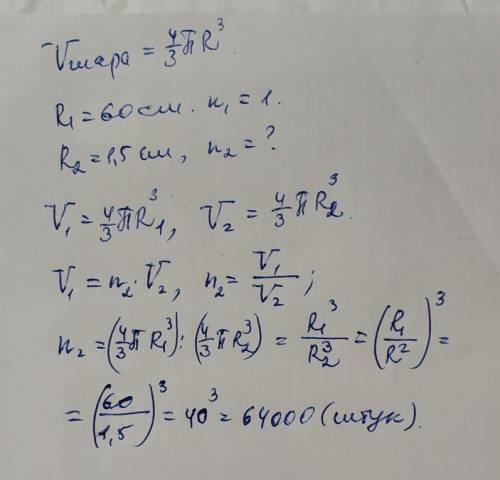 Vшара = 4/3 πR³.
R₁ = 60 см. n₁ = 1.
R₂ = 1,5 см, n₂ = ?
V₁ = 4/3 πR₁³, V₂ = 4/3 πR₂³.
V₁ = n₂ · V₂, n₂ = V₁/V₂;
n₂ = (4/3 πR₁³) : (4/3 πR₂³) = R₁³/R₂³ = (R₁/R²)³ =
= (60/1,5)³ = 40³ = 64000 (штук).